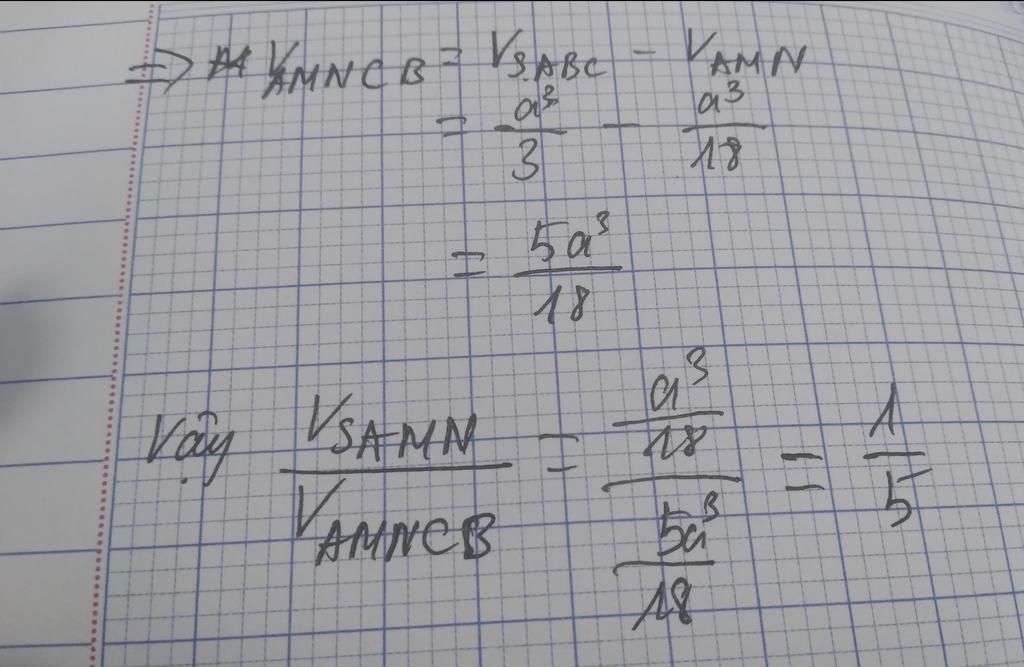 ⇒ V_AMNCB = V_SABC - V_AMN
= a³/3 - a³/18
= 5a³/18
Vậy V_SAMN/V_AMNCB = (a³/18)/(5a³/18) = 1/5